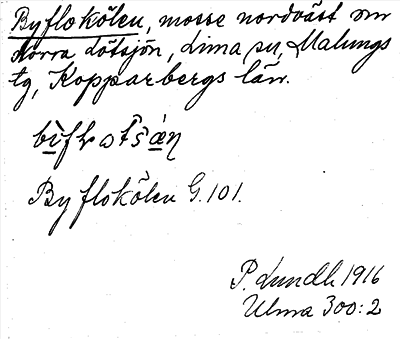 Byflokölen, mosse nordväst om
norra Lötsjön, Lima sn, Malungs
tg, Kopparbergs län.
Byflokölen G. 101.
P. Lundh 1916
Ulma 300:2